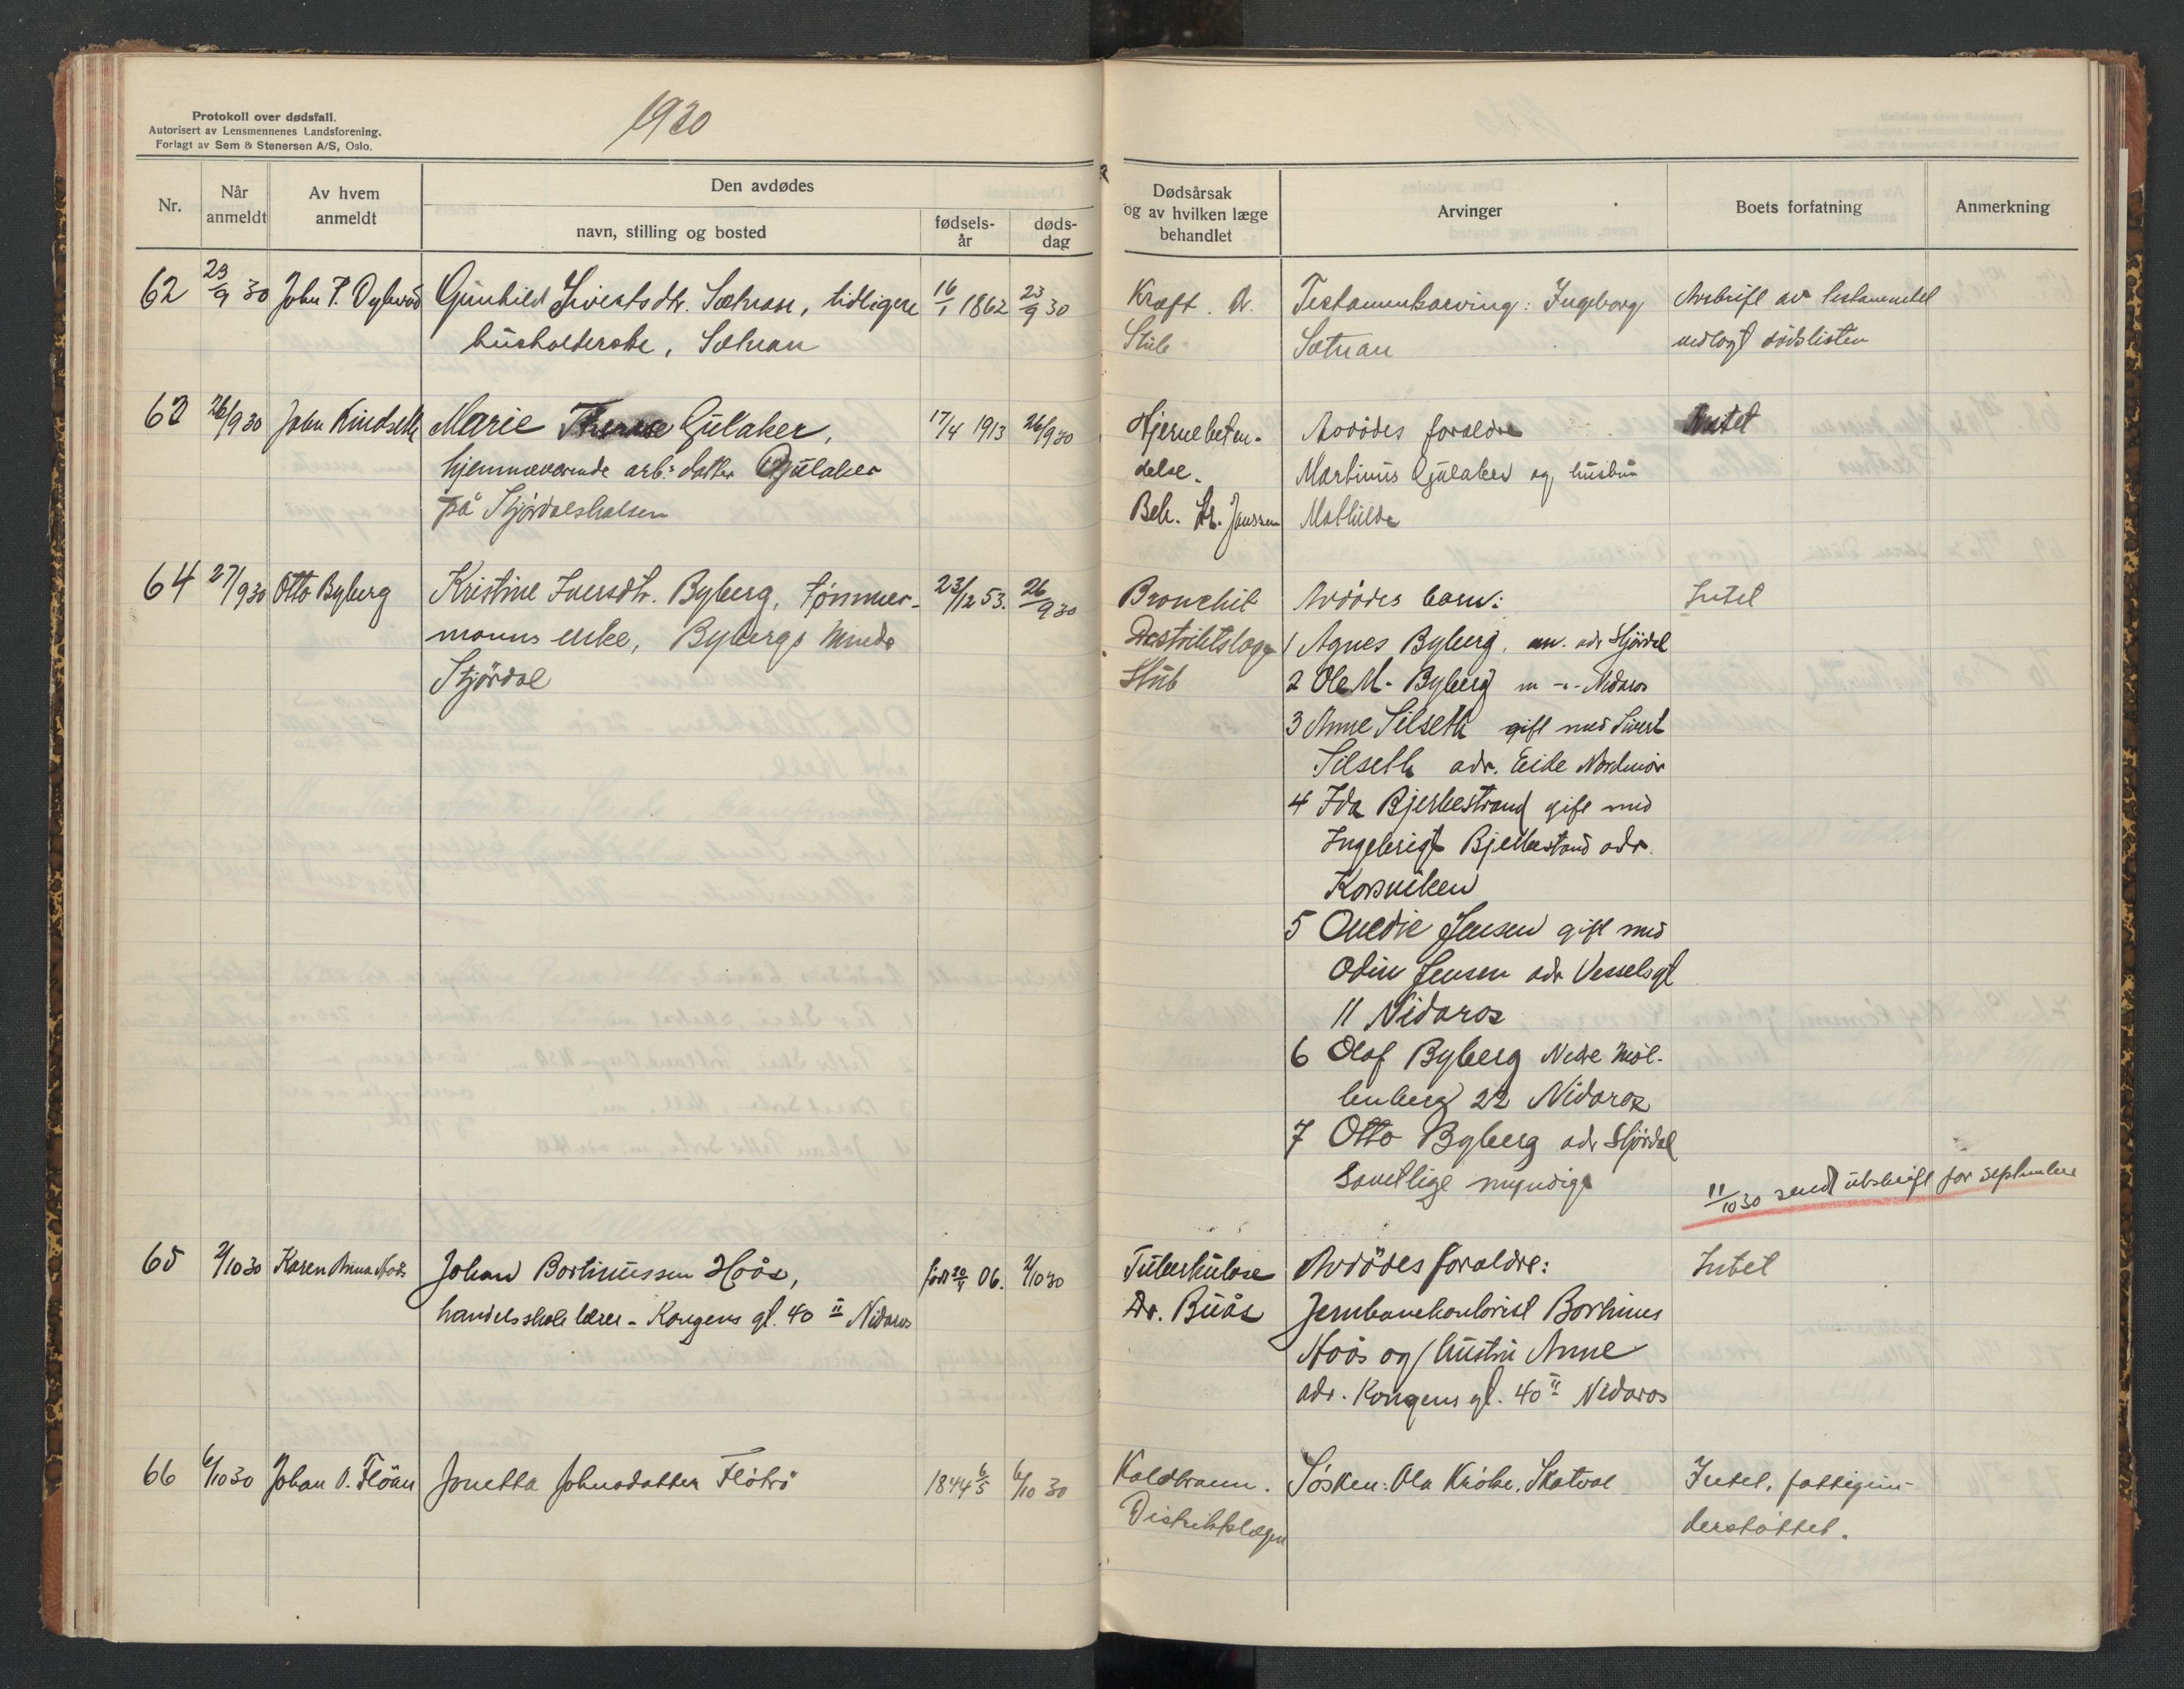 Protokoll over dødsfall.
Autorisert av Lensmennenes Landsforening.
Forlagt av Sem & Stenersen A/S, Oslo.
1930
Nr.
Når anmeldt
Av hvem anmeldt
Den avdødes
navn, stilling og bosted
fødsels-år
døds-dag
Dødsårsak og av hvilken læge behandlet
Arvinger
Boets forfatning
Anmerkning
62 23/9 30 John P. Gunhild Sivertsdtr. Sætnan, tidligere 16/1 1862 23/9 30
husholderske, Sætnan
Kræft. Dr.
Stub
Testamentsarving: Ingeborg
Sætnan
Avskrift av testamentet
vedlagt dødslisten
63 26/9 30 John Kindseth Marie Therese Gulaker, 17/4 1913 26/9 30
hjemmeværende arb: datter Gulaker
på Stjørdalshalsen
Hjernebeten-
delse.
Beh. Dr. Janssen
Avdødes foreldre
Martinus Gulaker og hustru
Mathilde
Intet
64 27/9 30 Otto Byberg Kristine Iversdtr. Byberg, tømmer- 23/12 53. 26/9 30
manns enke, Bybergs minde
Stjørdal
Bronchit
Distriktslæge
Stub
Avdødes barn:
1 Agnes Byberg, adr Stjørdal
2 Ole M. Byberg m -"- Nidaros
3 Anne Silseth gift med Sivert
Silseth adr. Eide Nordmør
4 Ida Bjerkestrand gift med
Ingebrigt Bjerkestrand adr.
Korsviken
5 Ovedie Jensen gift med
Odin Jensen adr Vesselsgt
11 Nidaros
6 Olaf Byberg Nedre Møl-
lenberg 22 Nidaros
7 Otto Byberg adr Stjørdal
Samtlige myndige
Intet
11/10 30 sendt utskrift for september
65 2/10 30 Karen Anna Hoås Johan Bortinussen Hoås, født 20/4 06. 2/10 30
handelsskolelærer - Kongens gt. 40 II Nidaros
Tuberkulose
Dr. Buås
Avdødes foreldre:
Jernbanekontorist Bortinus
Hoås og hustru Anne
adr. Kongens gt. 40 II Nidaros
Intet
66 6/10 30 Johan O. Fløan Jonetta Johnsdatter Fløtrø 1844 6/5 6/10 30
Koldbrann.
Distriktslægen
Søsken: Ola Kråke, Skatval
Intet, fattigun-
derstøttet.